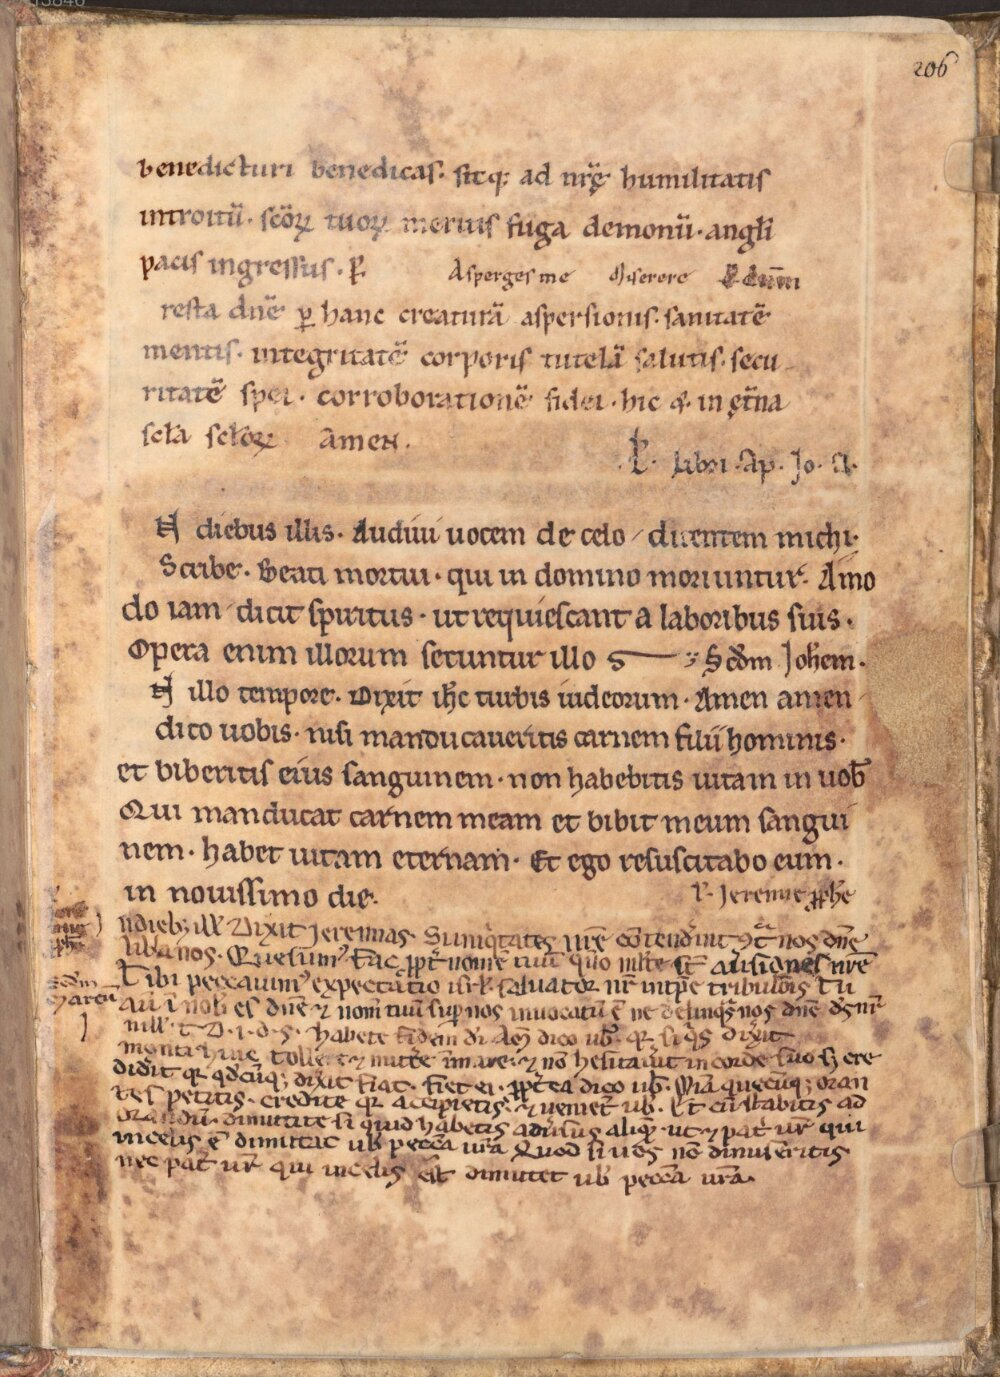 206
benedicturi benedicas. sitq; ad nr̄ę humilitatis
introitū. scōꝝ tuoꝝ meritis fuga demonū. angli
pacis ingressus. ꝑ Asperges me Miserere
resta dn̄e ꝑ hanc creaturā aspersionis. sanitatē
mentis. integritatē corporis tutelā salutis. secu
ritatē spei. corroborationē fidei. hic & in ęt̄na
scl̄a scl̄oꝝ amen.
L. libri. Ap. Jo. A.
N diebus illis. Audiui uocem de celo dicentem michi.
Scribe. Beati mortui. qui in domino moriuntur. Amo
do iam dicit spiritus. ut requiescant a laboribus suis.
Opera enim illorum secuntur illo s Scd̄m Joh̄em.
N illo tempore. Dixit ih̄c turbis iudeorum. Amen amen
dico uobis. nisi manducaueritis carnem filii hominis.
et biberitis eius sanguinem. non habebitis uitam in uob̄
Qui manducat carnem meam et bibit meum sangui
nem. habet uitam eternam. Et ego resuscitabo eum.
in nouissimo die. L. Jeremie ꝓph̄e
ndieb; ill̄ Dixit Jeremias. Si iniq̇tates nr̄e cōtendeīnt ꝯt̄ nos dn̄e
lib̄a nos. Quesumꝰ fac ꝓpt̄ nomē tuū quo ml̄te st̄ auersiones nr̄e
Tibi peccauimꝰ expectatio isrl̄. saluator nr̄ in tp̄e tribulōis Tu
aū ī nob̄ es dn̄e ⁊ nom̄ tuū suꝑ nos inuocatū ē ne delinq̄s nos dn̄e ds̄ nr̄
scd̄m
marcū
ill. t. D. i. d. s. habete fidem di. Am̄ dico ub̄. qꝛ siq̇s dixit
monti huic tollere ⁊ mittere ī mare. ⁊ nō hesitauit in corde suo s; cre
didit qꝛ qd̄cūq; dixit fiat. fiet ei. ꝓpt̄ea dico ub̄. om̄ia quecūq; oran
tes petitis. credite qꝛ accipietis. ⁊ ueniet ub̄. Et cū stabitis ad
orandū. dimittite si quid habetis aduersus aliqē. ut ⁊ pat̄ ur̄ qui
in celis ē dimittat ub̄ pecc̄a ur̄a Quod si uos nō dimiseritis
nec pat̄ ur̄ qui in celis est dimittet ub̄ pecc̄a ur̄a.